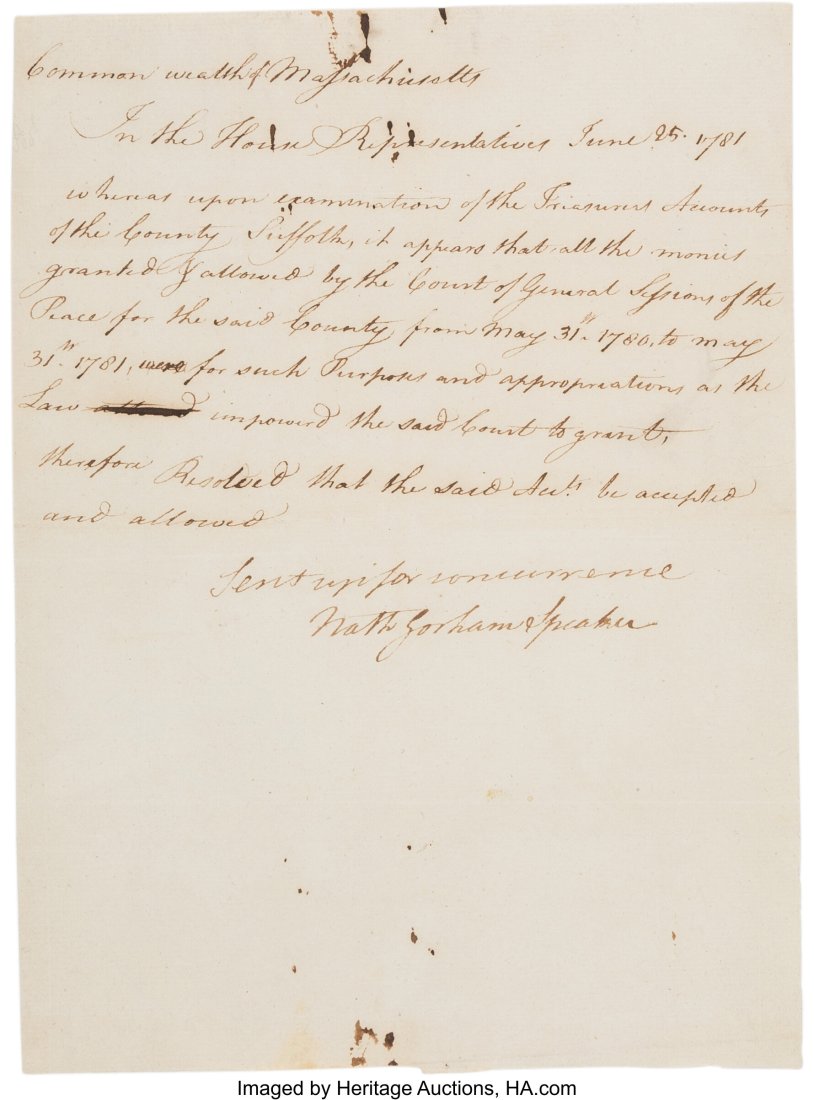 Common wealth of Massachusetts
In the House Representatives June 25. 1781
whereas upon examination of the Treasurers Accounts
of the County Suffolk, it appears that all the monies
granted & allowed by the Court of General Sessions of the
Peace for the said County from May 31st. 1780, to may
31st. 1781, were for such Purposes and appropriations as the
Law impowerd the said Court to grant,
therefore Resolved that the said Acctt. be accepted
and allowed
Sent up for concurrence
Nath Gorham Speaker
Imaged by Heritage Auctions, HA.com